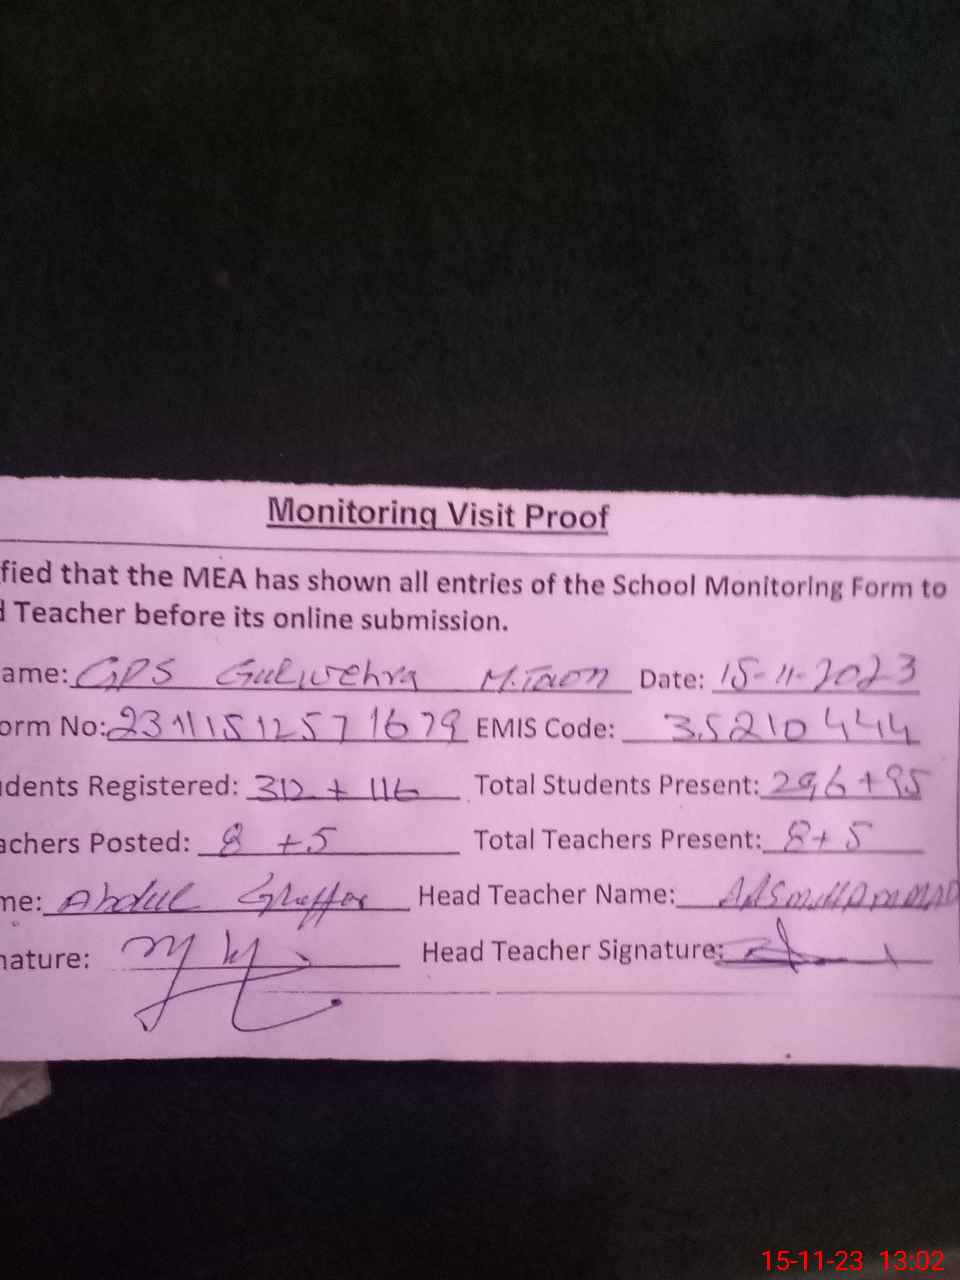 Monitoring Visit Proof
fied that the MEA has shown all entries of the School Monitoring Form to
d Teacher before its online submission.
ame: GPS Gulwehra M.Town Date: 15-11-2023
orm No: 23111512571679 EMIS Code: 35210444
dents Registered: 312 + 116 Total Students Present: 296+95
achers Posted: 8 +5 Total Teachers Present: 8+5
me: Abdul Ghaffar Head Teacher Name:
nature: Head Teacher Signature:
15-11-23 13:02